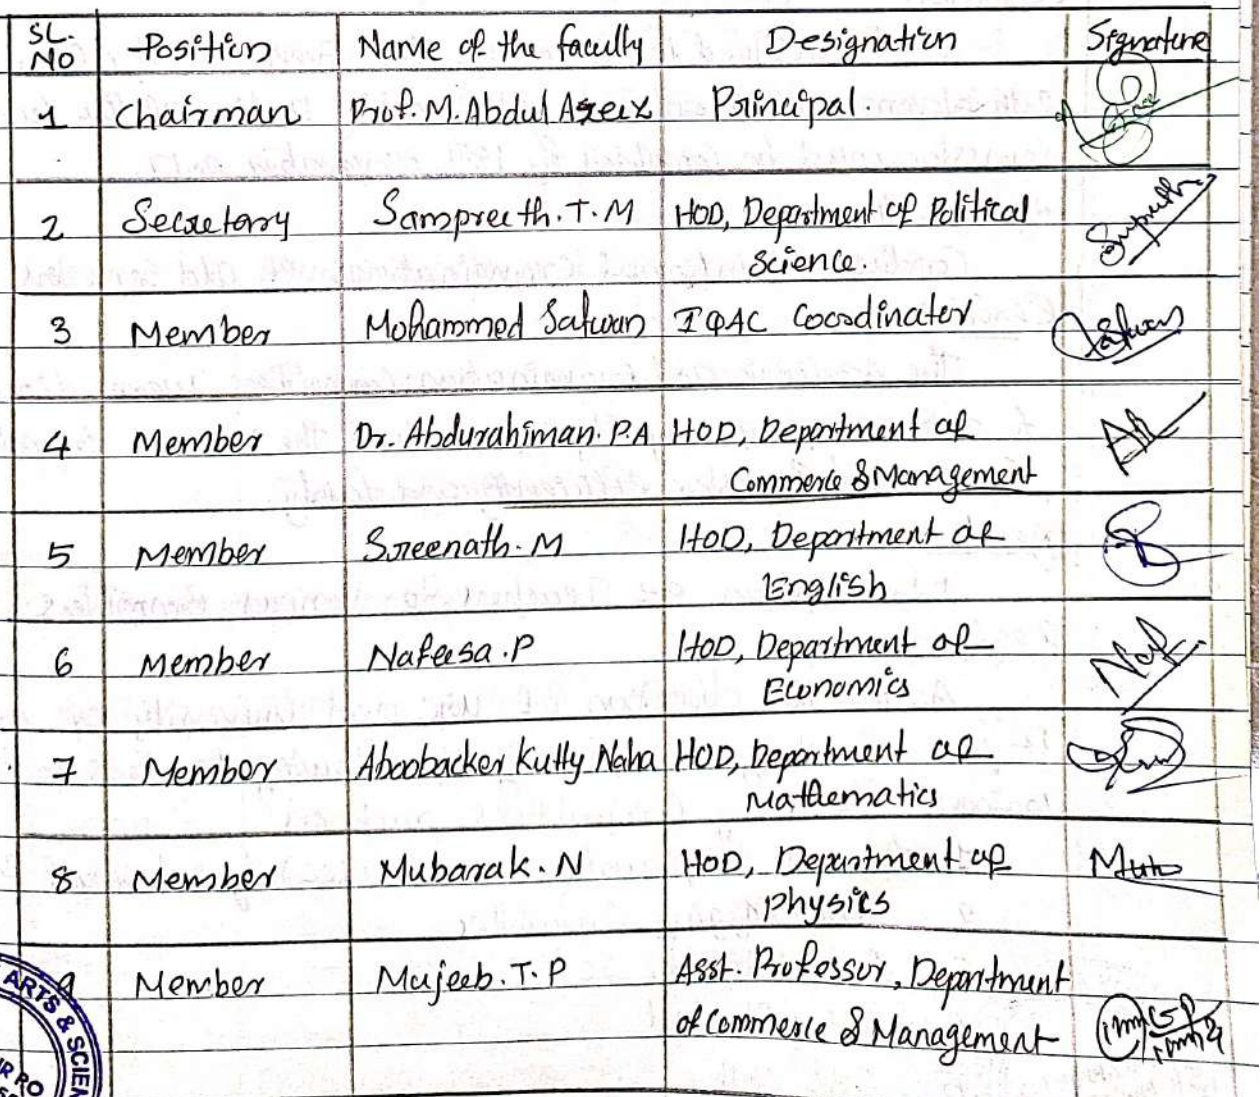 SL. NO Position Name of the faculty Designation Signature
1 Chairman Prof. M. Abdul Azeez Principal.
2 Secretary Sampreeth. T. M HOD, Department of Political
Science.
3 Member Mohammed Safwan IQAC Coordinator
4 Member Dr. Abdurahiman. P.A HOD, Department of
Commerce & Management
5 Member Sreenath. M HOD, Department of
English
6 Member Nafeesa. P HOD, Department of
Economics
7 Member Aboobacker Kutty Naha HOD, Department of
Mathematics
8 Member Mubarak. N HOD, Department of
Physics
9 Member Mujeeb. T. P Asst. Professor, Department
of Commerce & Management
ARTS & SCIEN